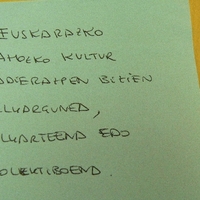 EUSKARAZKO
AHOZKO KULTUR
ADIERAZPEN BIZIEN
ELKARGUNEA,
ELKARTEENA EDO
KOLEKTIBOENA.